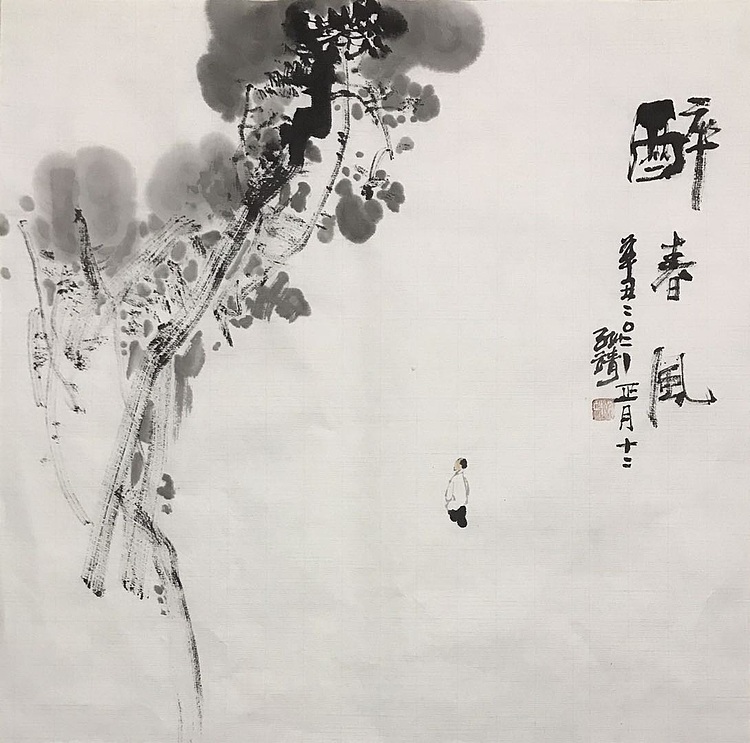 醉春風
辛丑二〇二一正月十二